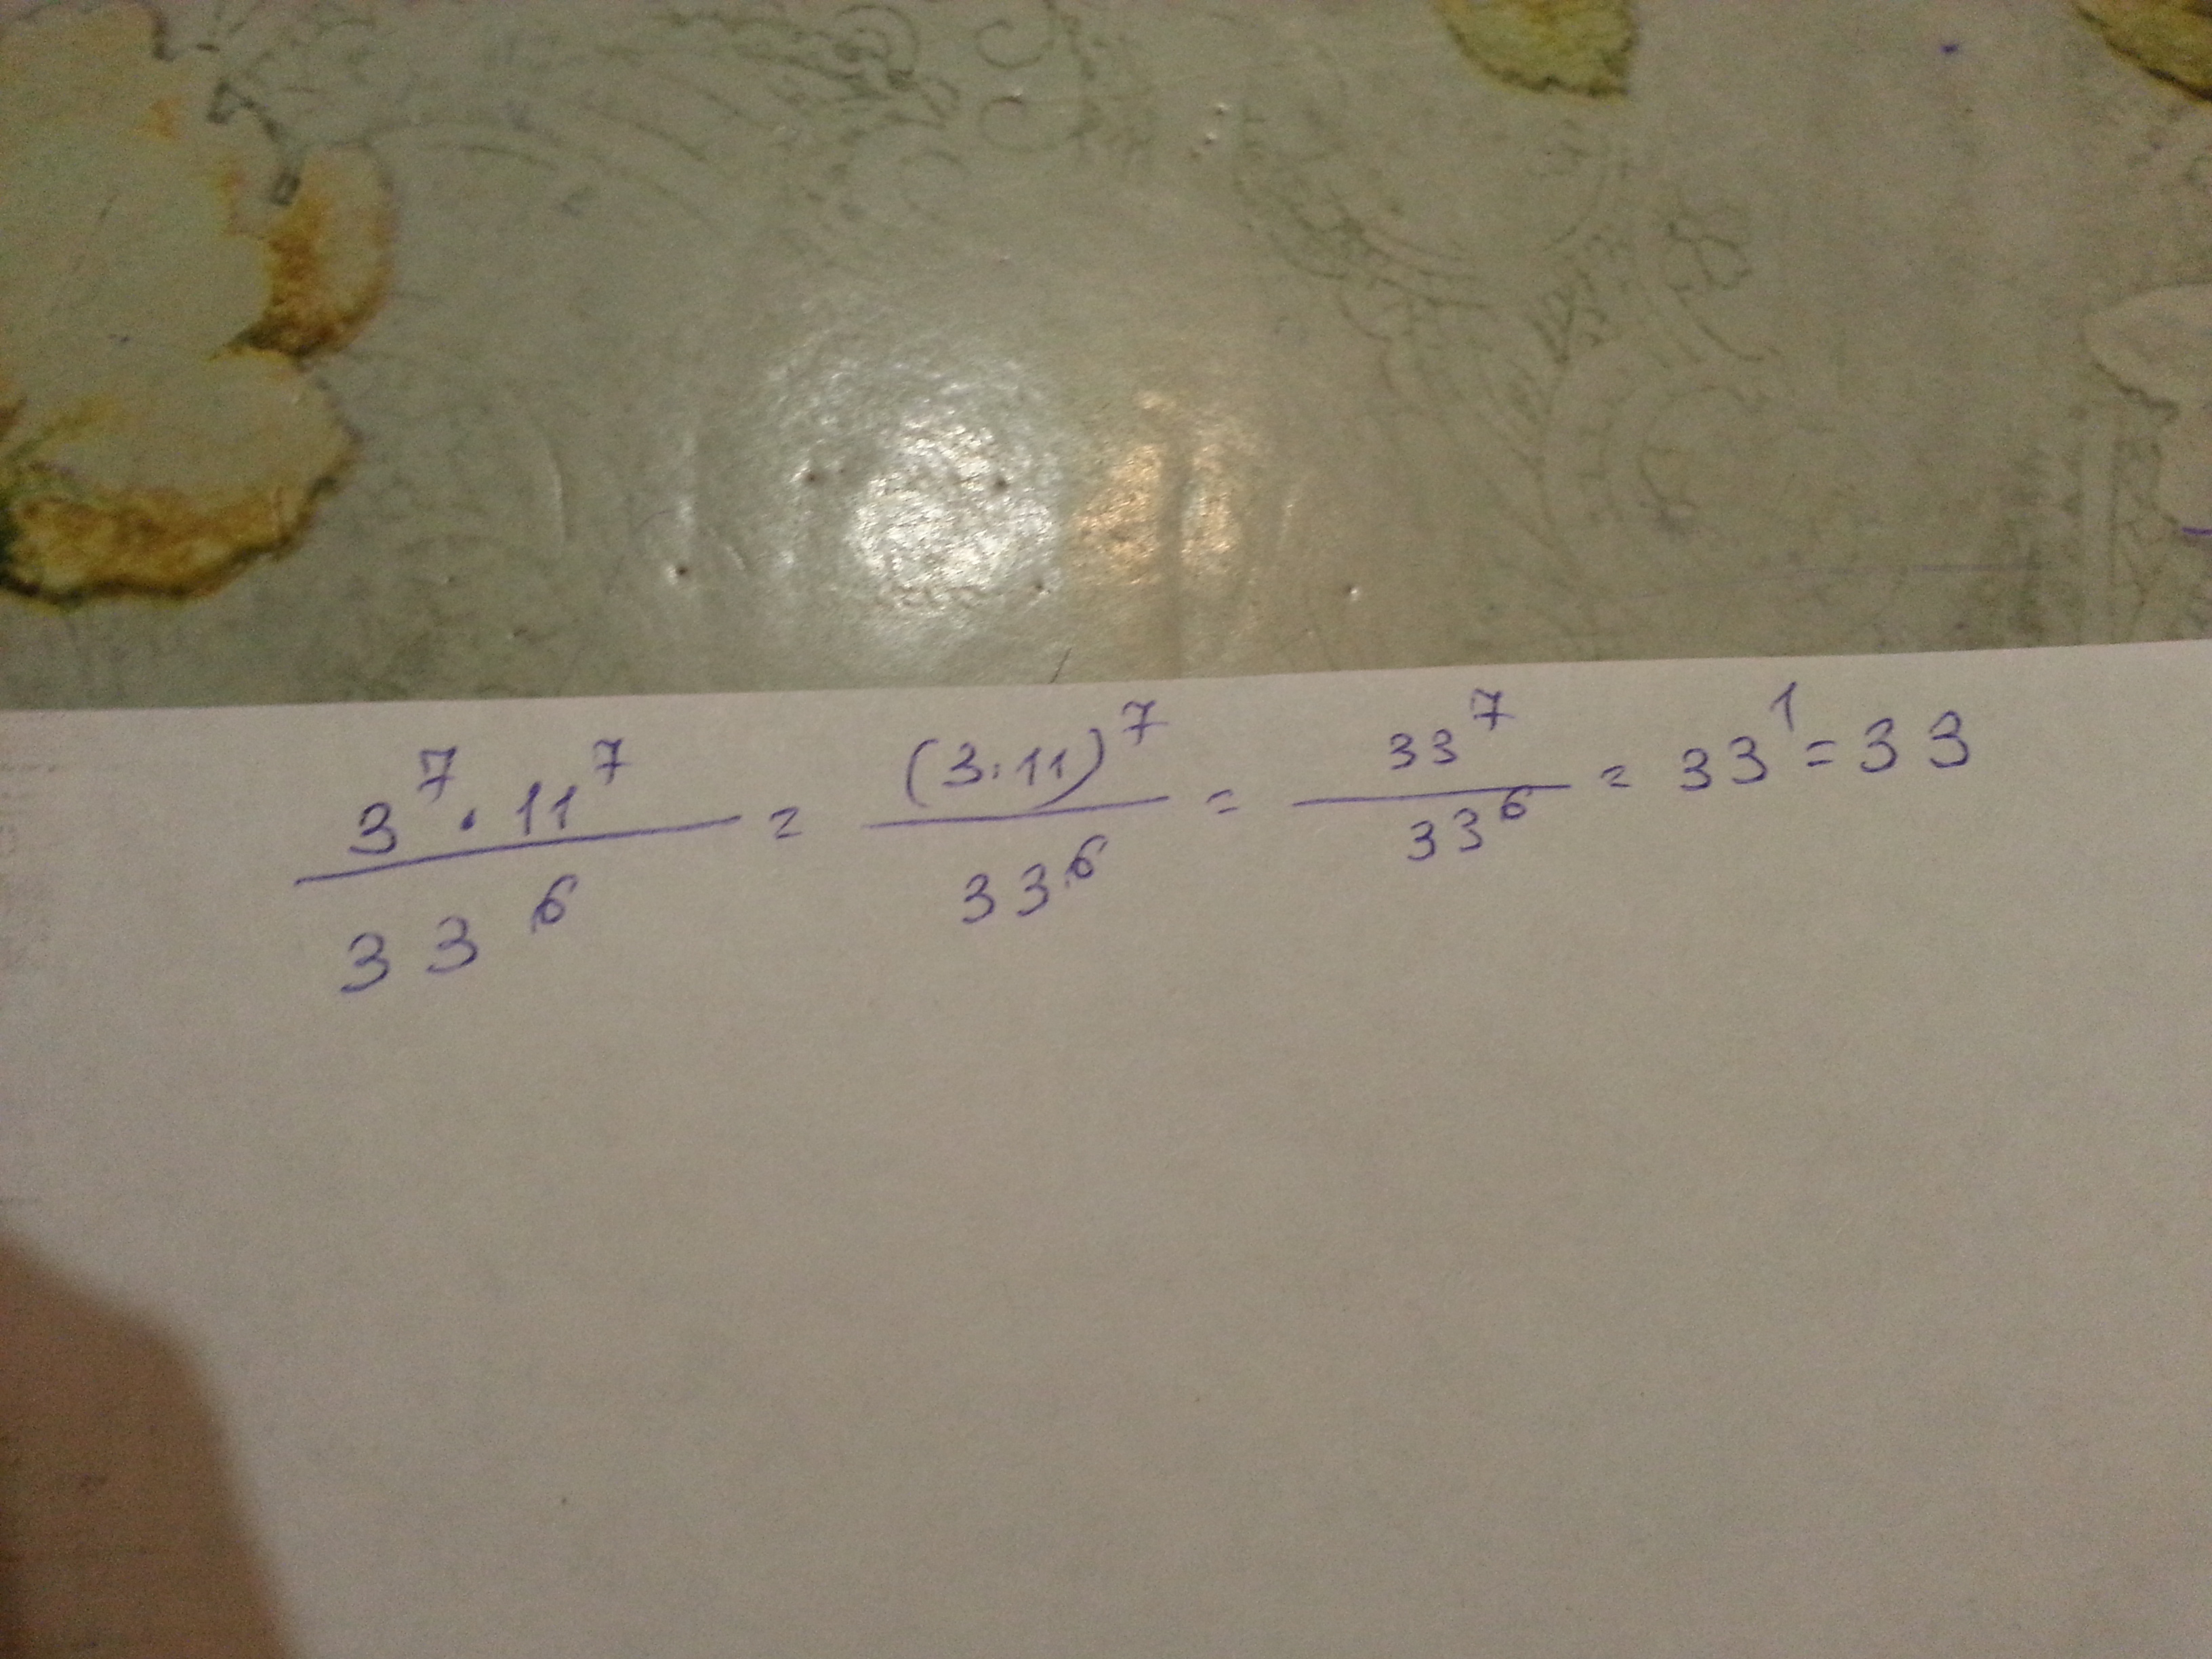 3^7 · 11^7 / 33^6 = (3·11)^7 / 33^6 = 33^7 / 33^6 = 33^1 = 33